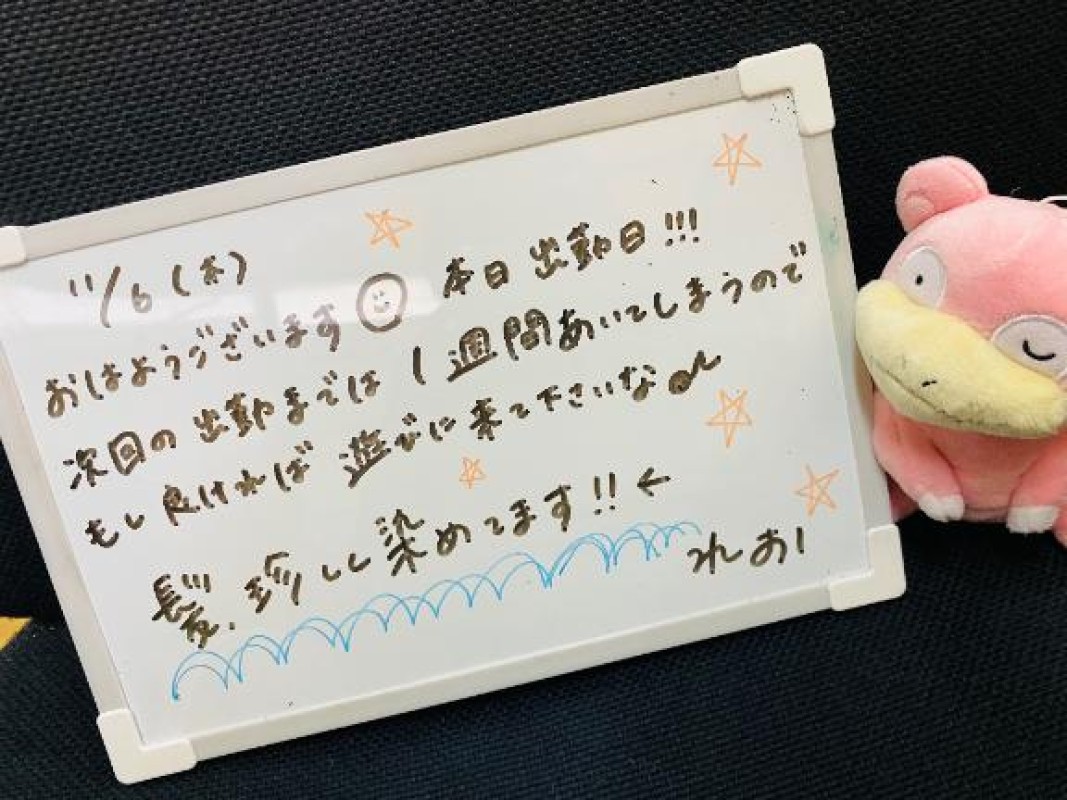 11/6(木)
おはようございます 本日出勤日!!!
次回の出勤までは1週間あいてしまうので
もし良ければ遊びに来て下さいな
髪、珍しく染めてます!!←
れおー